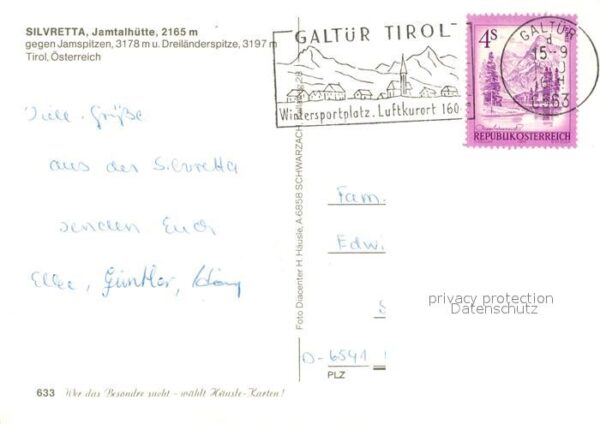 SILVRETTA, Jamtalhütte, 2165 m
gegen Jamspitzen, 3178 m u. Dreiländerspitze, 3197 m
Tirol, Österreich
GALTÜR TIROL
Wintersportplatz. Luftkurort 160
GALTÜR
15-9
6563
4S
REPUBLIK ÖSTERREICH
Viele Grüße
aus der Silvretta
senden Euch
Elke, Günther,
Foto Diacenter H. Häusle, A 6858 SCHWARZACH
Fam.
Edw
privacy protection
Datenschutz
D-6541
PLZ
633 Wer das Besondre sucht - wählt Häusle-Karten!